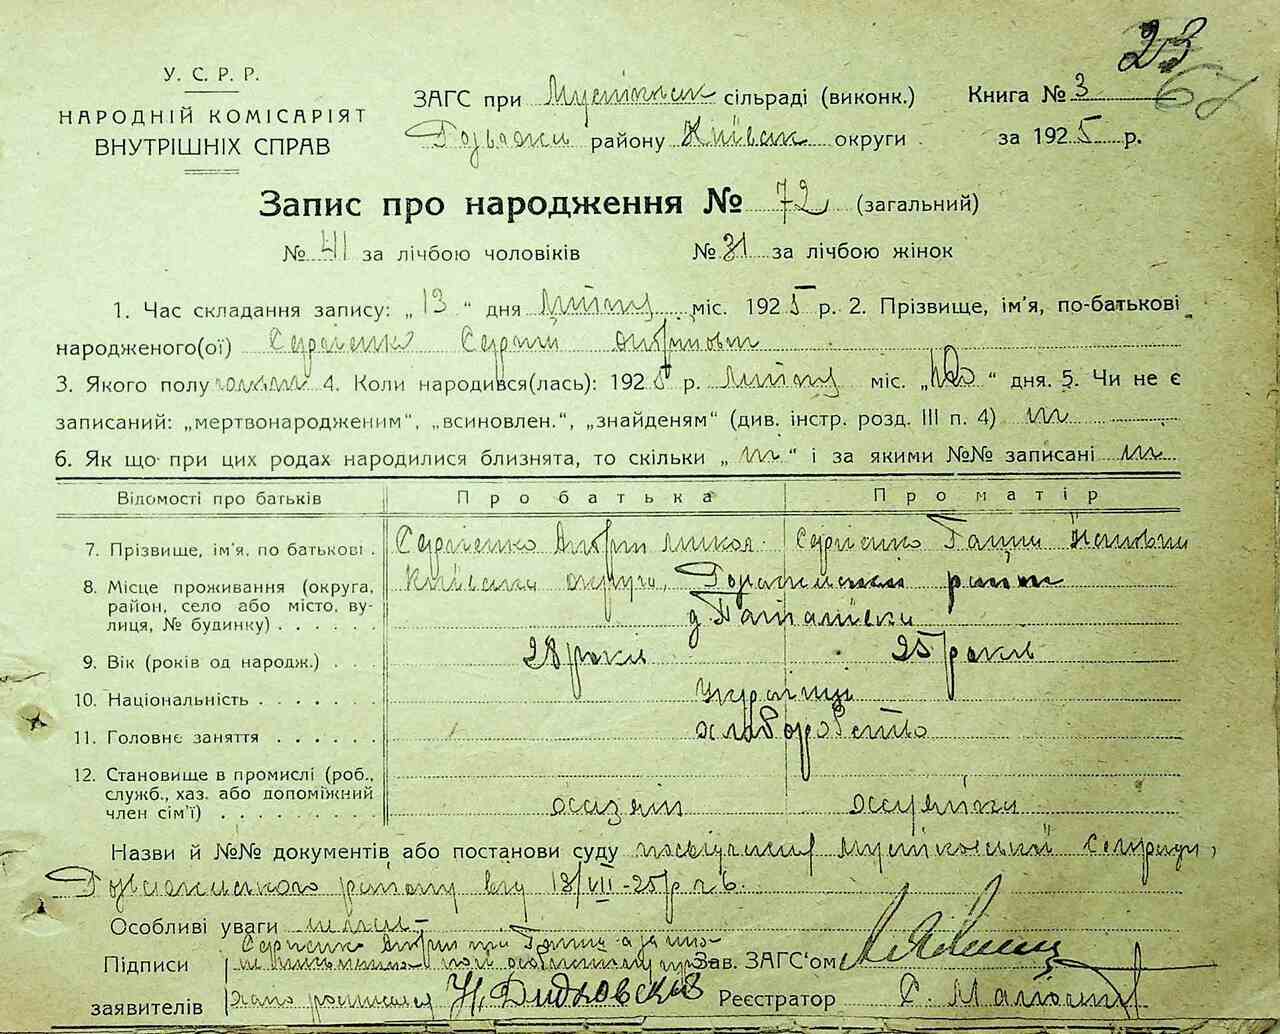 23
67
У. С. Р. Р.
НАРОДНІЙ КОМІСАРІЯТ
ВНУТРІШНІХ СПРАВ
ЗАГС при сільраді (виконк.)
району Київськ округи
Книга № 3
за 1925 р.
Запис про народження № 72 (загальний)
№ 41 за лічбою чоловіків № 31 за лічбою жінок
1. Час складання запису: „ 13 “ дня липня міс. 1925 р. 2. Прізвище, ім'я, по-батькові
народженого(ої) Сергієнко Сергій Андрійович
3. Якого полу 4. Коли народився(лась): 1925 р. липня міс. „ “ дня. 5. Чи не є
записаний: „мертвонародженим“, „всиновлен.“, „знайденям“ (див. інстр. розд. III п. 4) ні
6. Як що при цих родах народилися близнята, то скільки „ ні “ і за якими №№ записані ні
Відомості про батьків Про батька Про матір
7. Прізвище, ім'я, по батькові . Сергієнко Андрій Микол. Сергієнко Ганна
8. Місце проживання (округа, Київська округа, район
район, село або місто, ву-
лиця, № будинку) . . . . . д.
9. Вік (років од народж.) . . . 28 років 25 років
10. Національність . . . . . . . українці
11. Головнє заняття . . . . . . хлаборобство
12. Становище в промислі (роб.,
служб., хаз. або допоміжний
член сім'ї) . . . . . . . . . хазяїн
Назви й №№ документів або постанови суду посвідчення Сельради,
району від 13/VII-25 р. № 6.
Особливі уваги немає
Сергієнко Андрій Ганна а за них
Підписи
заявителів росписався Н. Дидковский
Зав. ЗАГС'ом
Реєстратор С.